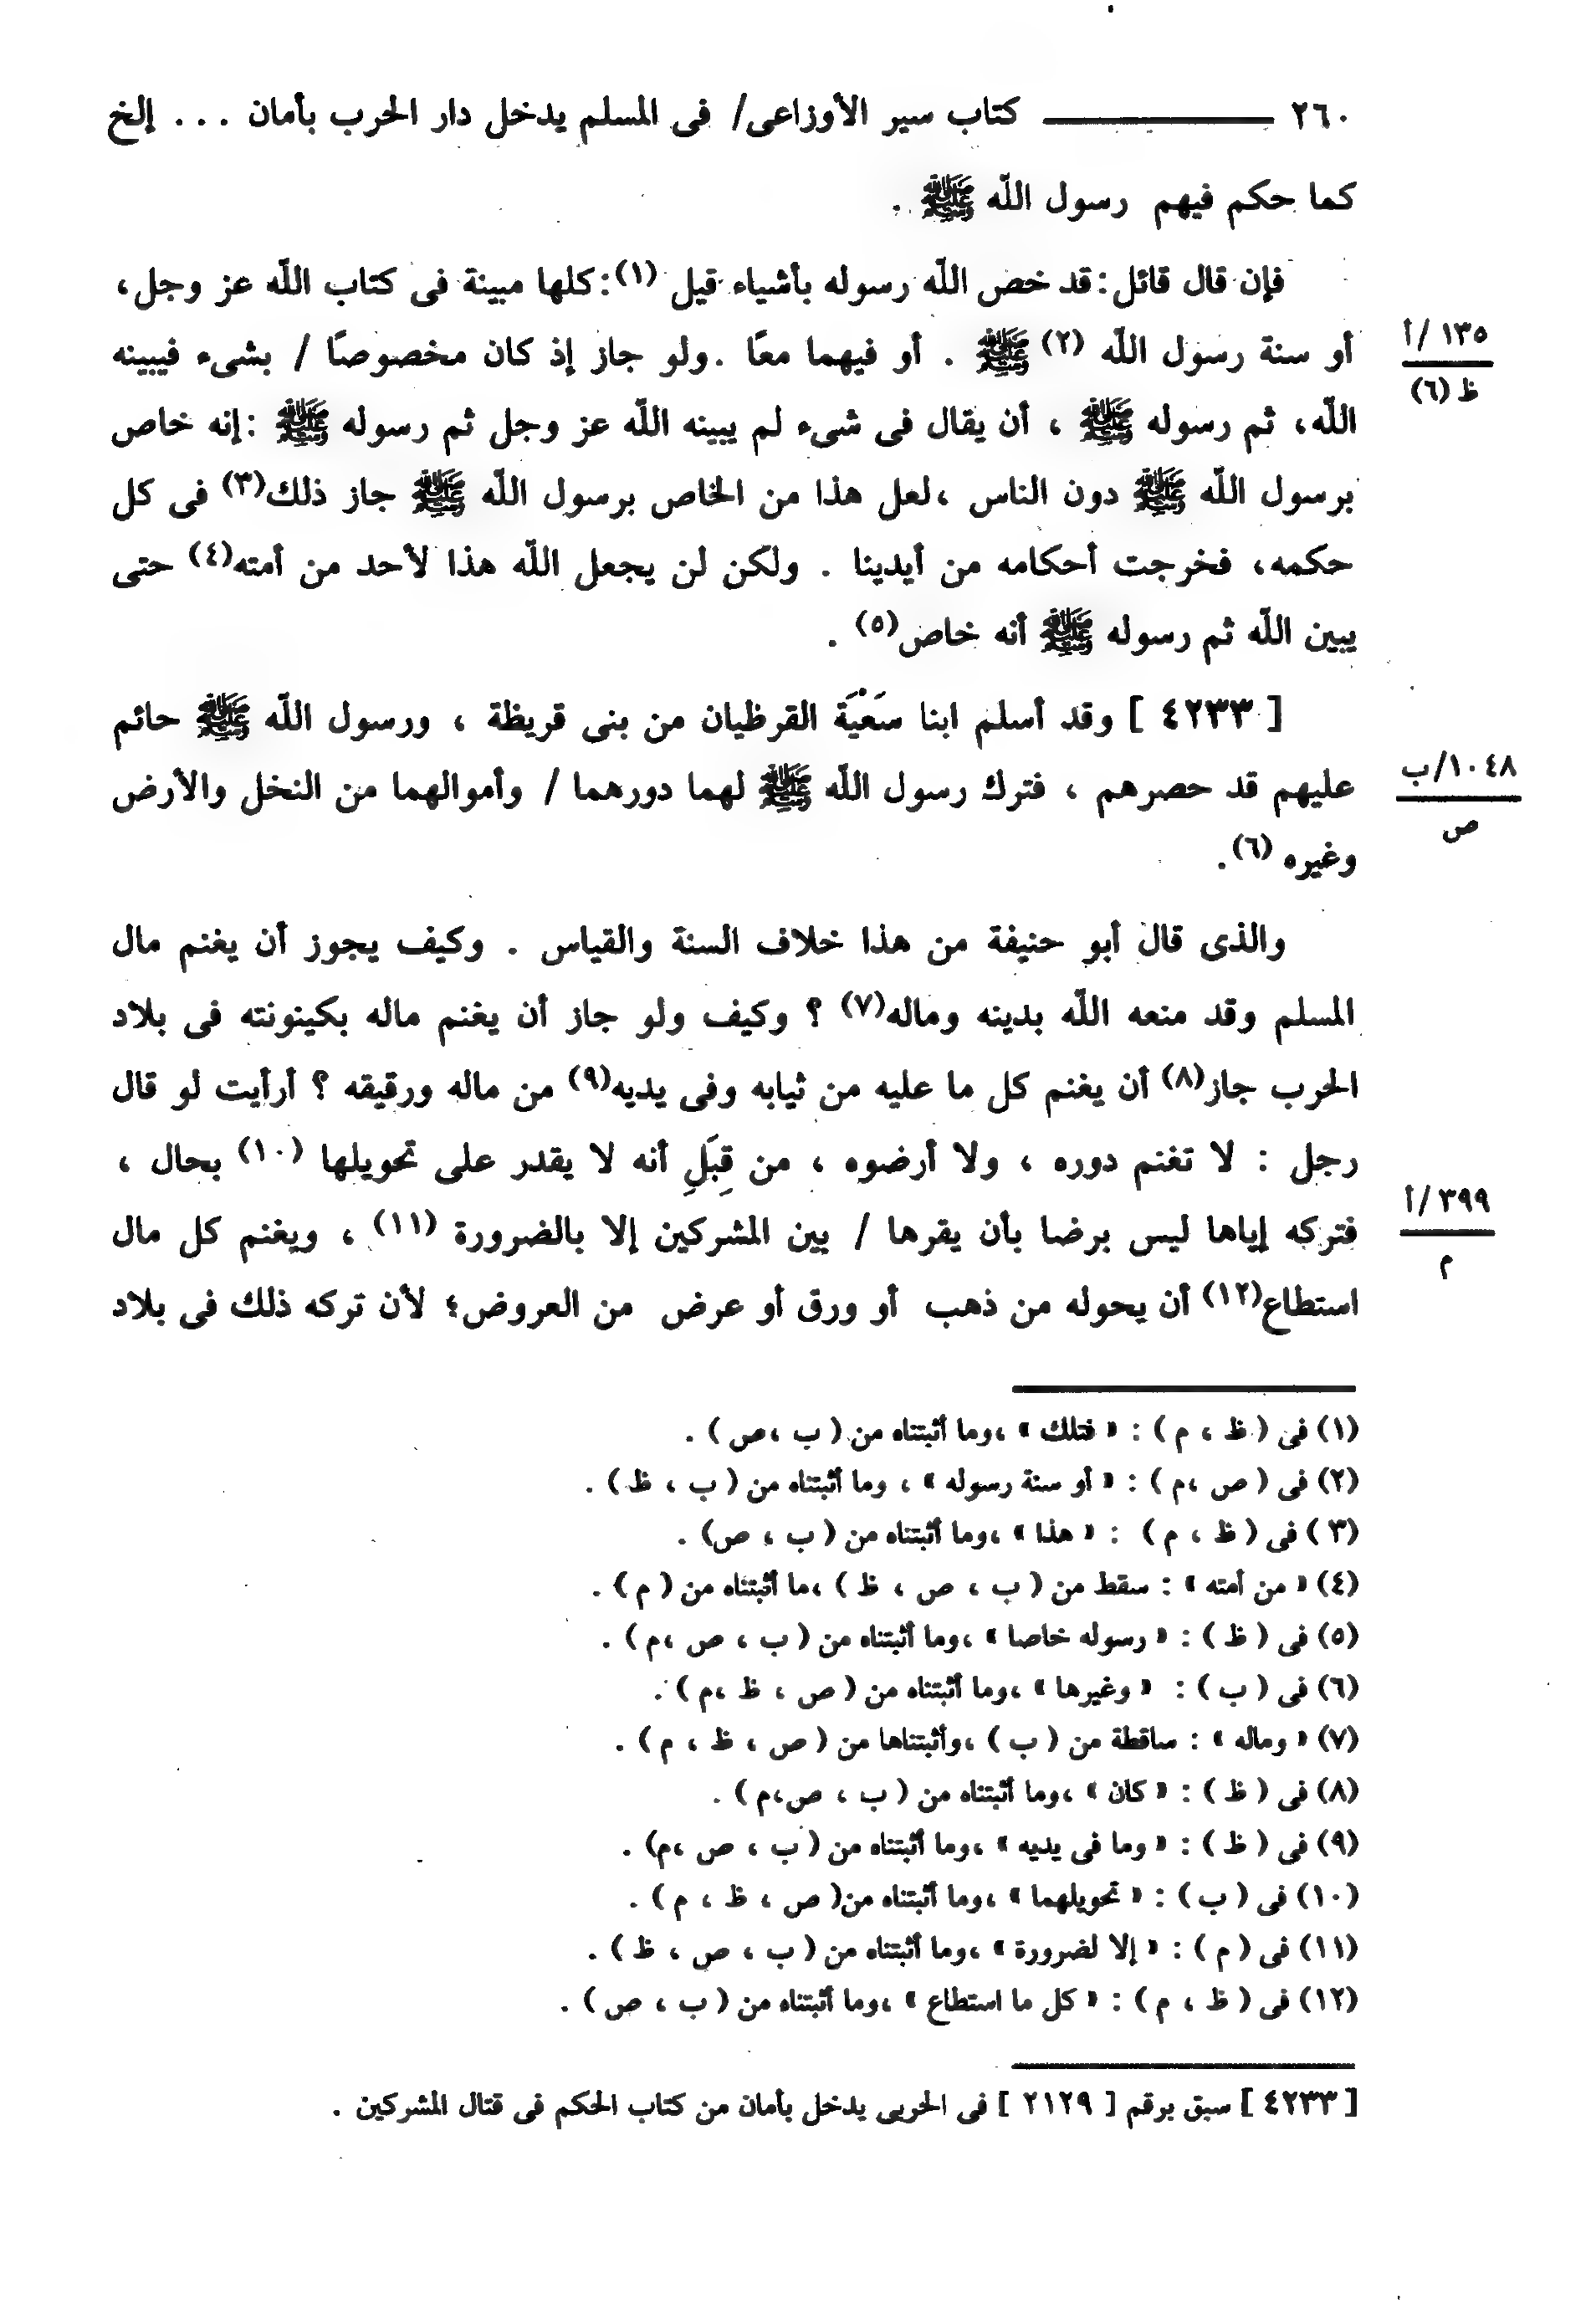 ٢٦٠ ــــــ كتاب سير الأوزاعى/ فى المسلم يدخل دار الحرب بأمان . . . إلخ
كما حكم فيهم رسول اللّه ﷺ .
فإن قال قائل: قد خص اللّه رسوله بأشياء قيل (١): كلها مبينة فى كتاب اللّه عز وجل،
أو سنة رسول اللّه (٢) ﷺ . أو فيهما معًا . ولو جاز إذ كان مخصوصًا / بشىء فيبينه
١٣٥ /أ
ظ (٦)
اللّه، ثم رسوله ﷺ ، أن يقال فى شىء لم يبينه اللّه عز وجل ثم رسوله ﷺ : إنه خاص
برسول اللّه ﷺ دون الناس ، لعل هذا من الخاص برسول اللّه ﷺ جاز ذلك(٣) فى كل
حكمه، فخرجت أحكامه من أيدينا . ولكن لن يجعل اللّه هذا لأحد من أمته(٤) حتى
يبين اللّه ثم رسوله ﷺ أنه خاص(٥) .
[ ٤٢٣٣ ] وقد أسلم ابنا سَعْيَة القرظيان من بنى قريظة ، ورسول اللّه ﷺ حائم
عليهم قد حصرهم ، فترك رسول اللّه ﷺ لهما دورهما / وأموالهما من النخل والأرض
١٠٤٨/ب
ص
وغيره (٦).
والذى قال أبو حنيفة من هذا خلاف السنة والقياس . وكيف يجوز أن يغنم مال
المسلم وقد منعه اللّه بدينه وماله(٧) ؟ وكيف ولو جاز أن يغنم ماله بكينونته فى بلاد
الحرب جاز(٨) أن يغنم كل ما عليه من ثيابه وفى يديه(٩) من ماله ورقيقه ؟ أرأيت لو قال
رجل : لا تغنم دوره ، ولا أرضوه ، من قِبَلِ أنه لا يقدر على تحويلها (١٠) بحال ،
فتركه إياها ليس برضا بأن يقرها / بين المشركين إلا بالضرورة (١١) ، ويغنم كل مال
٣٩٩ /أ
م
استطاع(١٢) أن يحوله من ذهب أو ورق أو عرض من العروض؛ لأن تركه ذلك فى بلاد
(١) فى ( ظ ، م ) : « فتلك » ، وما أثبتناه من ( ب ، ص ) .
(٢) فى ( ص ، م ) : « أو سنة رسوله » ، وما أثبتناه من ( ب ، ظ ) .
(٣ ) فى ( ظ ، م ) : « هذا » ، وما أثبتناه من ( ب ، ص) .
(٤) « من أمته » : سقط من ( ب ، ص ، ظ ) ، ما أثبتناه من ( م ) .
(٥) فى ( ظ ) : « رسوله خاصا » ، وما أثبتناه من ( ب ، ص ، م ) .
(٦) فى ( ب ) : « وغيرها » ، وما أثبتناه من ( ص ، ظ ، م ) .
(٧) « وماله » : ساقطة من ( ب ) ، وأثبتناها من ( ص ، ظ ، م ) .
(٨) فى ( ظ ) : « كان » ، وما أثبتناه من ( ب ، ص، م ) .
(٩) فى ( ظ ) : « وما فى يديه » ، وما أثبتناه من ( ب ، ص ، م) .
(١٠) فى ( ب ) : « تحويلهما » ، وما أثبتناه من( ص ، ظ ، م ) .
(١١) فى ( م ) : « إلا لضرورة » ، وما أثبتناه من ( ب ، ص ، ظ ) .
(١٢) فى ( ظ ، م ) : « كل ما استطاع » ، وما أثبتناه من ( ب ، ص ) .
[ ٤٢٣٣ ] سبق برقم [ ٢١٢٩ ] فى الحربى يدخل بأمان من كتاب الحكم فى قتال المشركين .